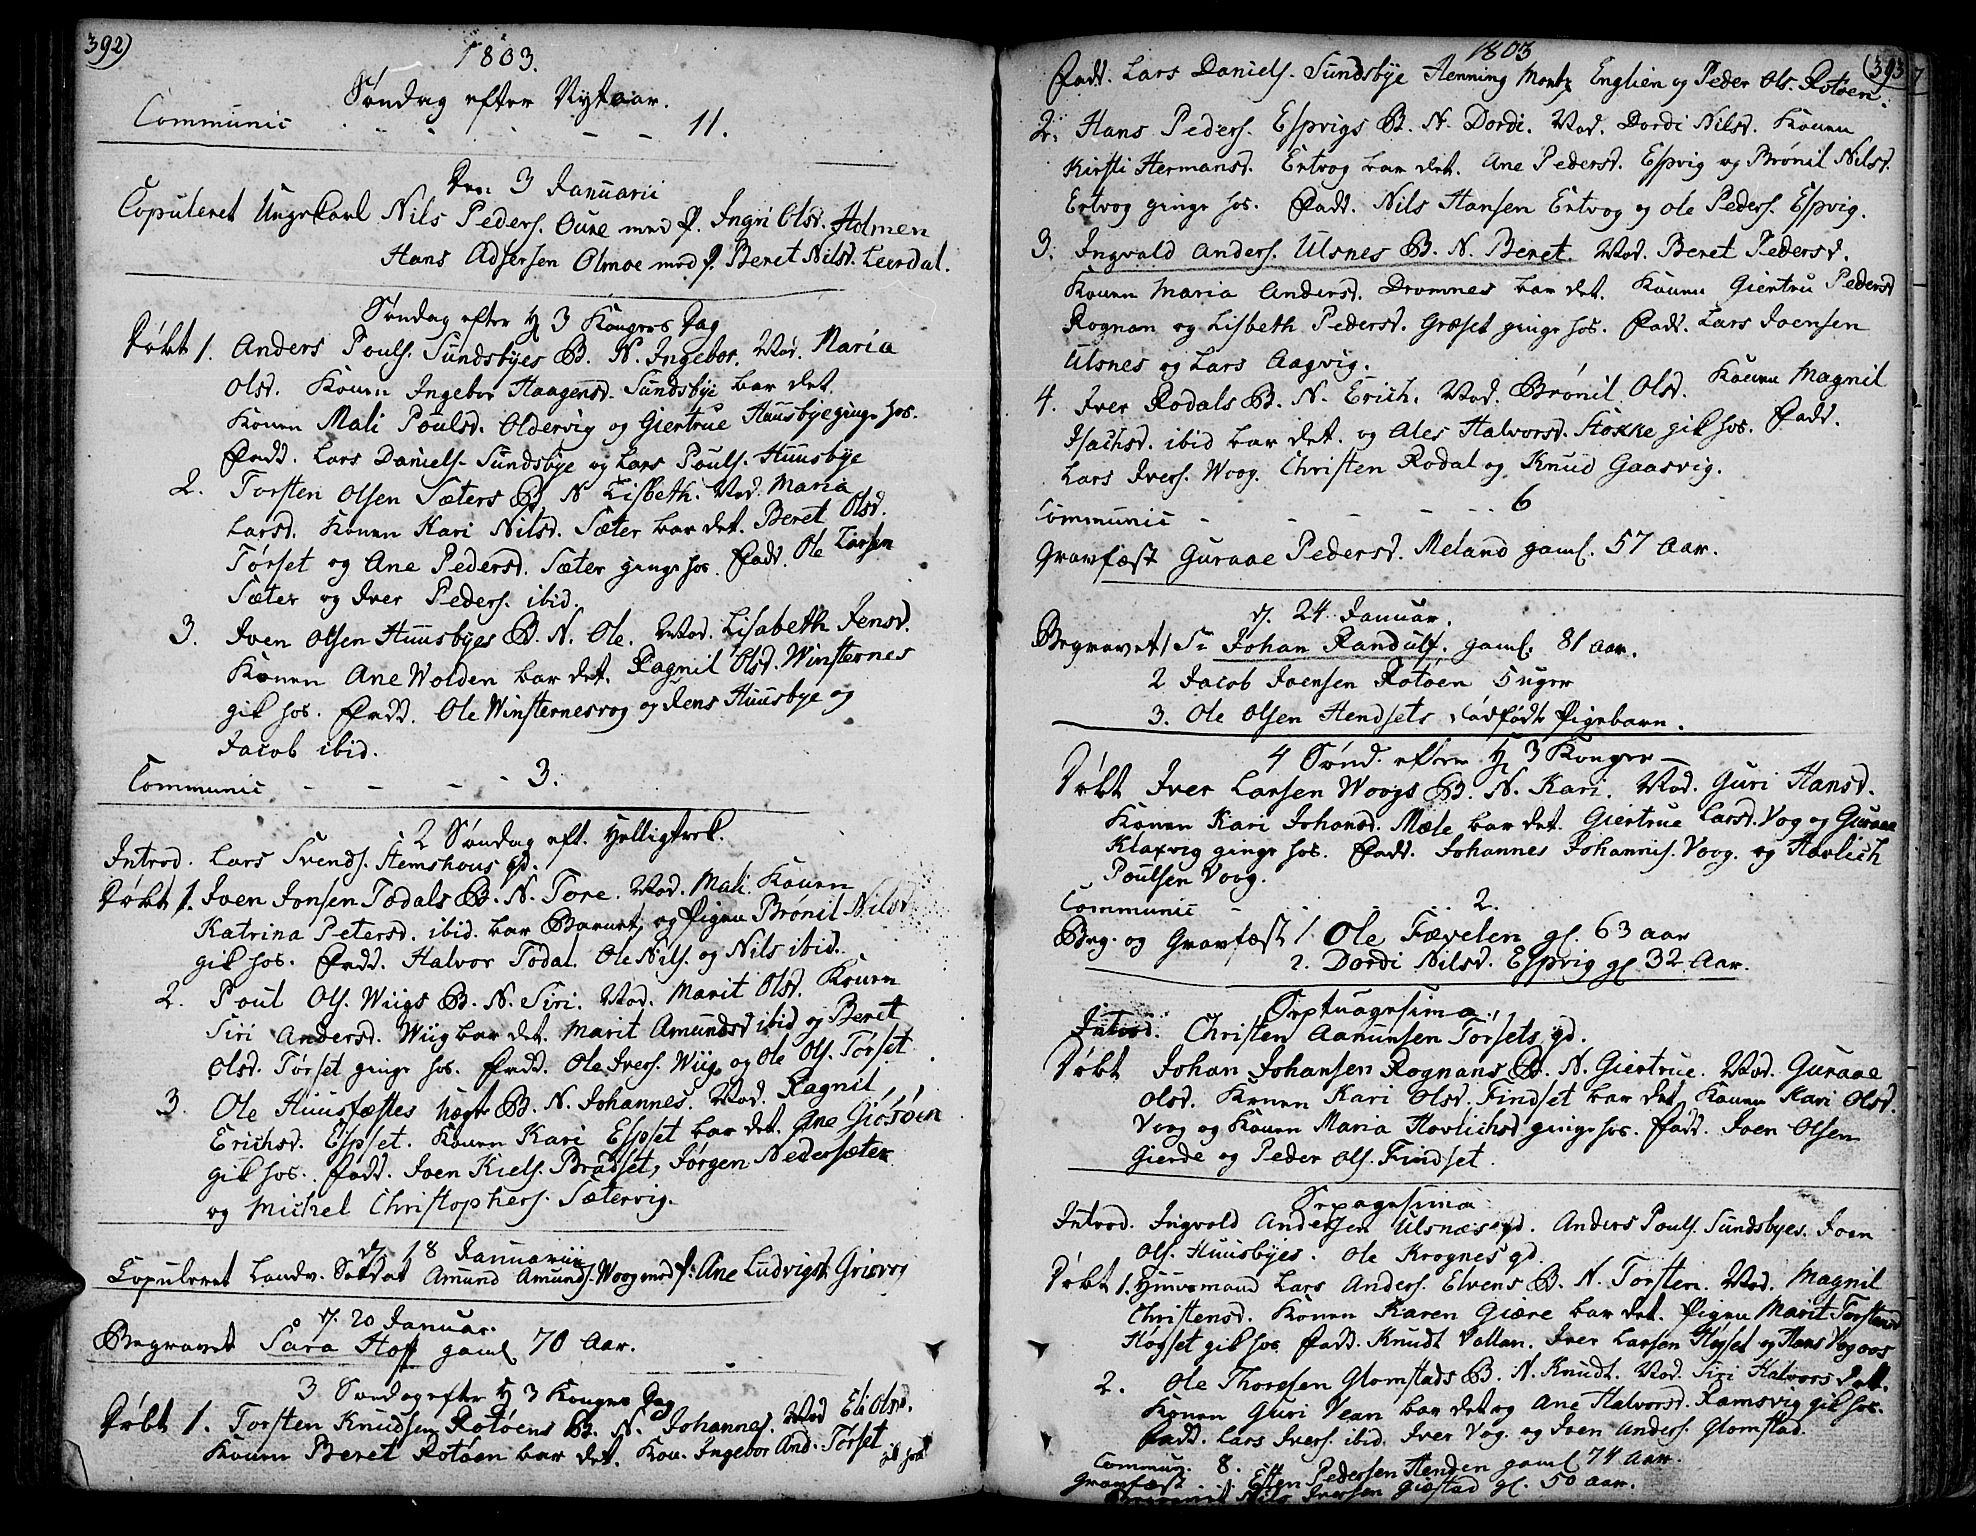 392)
1803.
Søndag efter Nytaar.
Communic - - - - - 11.
Den 3 Januarii
Copuleret Ungekarl Nils Peders. Oure med P. Ingri Olsd. Holmen
Hans Adsersen Olmoe med P. Beret Nilsd. Leerdal.
Søndag efter H 3 Kongers Dag
Døbt 1. Anders Pouls. Sundsbyes B. N. Ingebor. Mod. Maria
Olsd. Konen Ingebor Haagensd. Sundsbye bar det
Konen Mali Poulsd. Oldervig og Giertrue Huusbye ginge hos.
Fadd. Lars Daniels. Sundsbye og Lars Pouls. Huusbye
2. Torsten Olsen Sæters B. N Lisbeth. Mod. Maria
Larsd. Konen Kari Nilsd. Sæter bar det. Beret Olsd.
Tørset og Ane Pedersd. Sæter ginge hos. Fadd. Ole Larsen
Sæter og Iver Peders. ibid.
3. Joen Olsen Huusbyes B. N. Ole. Mod. Lisabeth Jensd.
Konen Ane Wolden bar det. Ragnil Olsd. Winsternes
gik hos. Fadd. Ole Winsternesvog og Jens Huusbye og
Jacob ibid.
Communic - - - - 3.
2 Søndag eft. Helligtrek.
Introd. Lars Svends. Stemshous qd.
Døbt 1. Joen Jonsen Todals B. N. Tore. Mod. Mali. Konen
Katrina Petersd. ibid. bar Barnet, og Pigen Brønil Nilsd
gik hos. Fadd. Halvor Todal. Ole Nils. og Nils ibid.
2. Poul Ols. Wiigs B. N. Siri. Mod. Marit Olsd. Konen
Siri Andersd. Wiig bar det. Marit Amundsd ibid og Beret
Olsd. Tørset ginge hos. Fadd. Ole Ivers. Wiig og Ole Ols. Tørset
3. Ole Huusfæstes Uægte B. N. Johannes. Mod. Ragnil
Erichsd. Espset. Konen Kari Espset bar det. Ane Giósøen
gik hos. Fadd. Joen Kiels. Brødset, Jørgen Nedersæter
og Michel Christophers. Sætervig.
d. 18 Januarii
Copuleret Landv. Soldat Amund Amunds. Woog med P. Ane Ludvigsd. Grisvog
d. 20 Januar.
Begravet Sara Hoff gaml 70 Aar.
3 Søndag efter H 3 Konges Dag
Døbt 1. Torsten Knudsen Rotøens B. N. Johannes. Mod Eli Olsd.
Konen Beret Rotøen bar det. Kon. Ingebor And. Tørset gik hos
1803
(393
Fadd. Lars Daniels. Sundsbye Henning Montz Englien og Peder Ols. Rotøen.
2. Hans Peders. Espvigs B. N. Dordi. Mod. Dordi Nilsd. Konen
Kirsti Hermansd. Ertvog bar det. Ane Pedersd. Espvig og Brønil Nilsd.
Ertvog ginge hos. Fadd. Nils Hansen Ertvog og Ole Peders. Espvig.
3. Ingvald Anders. Ulsnes B. N. Beret. Mod. Beret Pedersd.
Konen Maria Andersd. Dromnes bar det. Konen Giertru Pedersd
Rognan og Lisbeth Pedersd. Græset ginge hos. Fadd. Lars Joensen
Ulsnes og Lars Aagvig.
4. Iver Rodals B. N. Erich. Mod. Brønil Olsd. Konen Magnil
Isachsd. ibid bar det. og Ales Halvorsd. Stokke gik hos. Fadd.
Lars Ivers. Woog. Christen Rodal og Knud Gaasvig.
Communic - - - - - 6
Gravfæst Guraae Pedersd. Meland gaml. 57 Aar.
d. 24 Januar.
Begravet 1 Sr Johan Randulf. gaml. 81 Aar.
2 Jacob Joensen Rotøen 5 uger
3. Ole Olsen Hendsets dødfødte Pigebarn.
4 Sønd. efter H 3 Konger
Døbt Iver Larsen Woogs B. N. Kari. Mod. Guri Hansd.
Konen Kari Johansd. Mæle bar det. Giertrue Larsd. Vog og Guraae
Klaxvig ginge hos. Fadd. Johannes Johannis. Voog. og Havlich
Poulsen Voog.
Communic - - - - 2.
Beg. og Gravfæst 1. Ole Fævelen gl. 63 aar
2. Dordi Nilsd. Espvig gl. 32 Aar.
Septuagesima.
Introd. Christen Aanunsen Torsets qd.
Døbt Johan Johansen Rognans B. N. Giertrue. Mod. Guraae
Olsd. Konen Kari Olsd. Findset bar det. Konen Kari Olsd.
Voog og Konen Maria Havlichsd ginge hos. Fadd. Joen Olsen
Gierde og Peder Ols. Findset.
Sexagesima
Introd. Ingvald Andersen Ulsnæs qd. Anders Pouls Sundsbyes. Joen
Ols. Huusbyes. Ole Krognes qd.
Døbt 1. Huusmand Lars Anders. Elvens B. N. Torsten. Mod. Magnil
Christensd. Konen Karen Giære bar det. Pigen Marit Torstensd
Høgset gik hos. Fadd. Knudt Vollan. Iver Larsen Høgset og Hans Vogoos
2. Ole Thoresen Glomstads B. N. Knudt. Mod. Siri Halvors Datt.
Konen Guri Vean bar det og Ane Halvorsd. Ramsvig gik hos.
Fadd. Lars Ivers. ibid. Iver Vog. og Joen Anders. Glomstad.
Commun. 8.
Gravfæst Esten Pedersen Henden gaml 74 Aar.
Begravet Nils Iversen Giøstad gl. 50 aar.